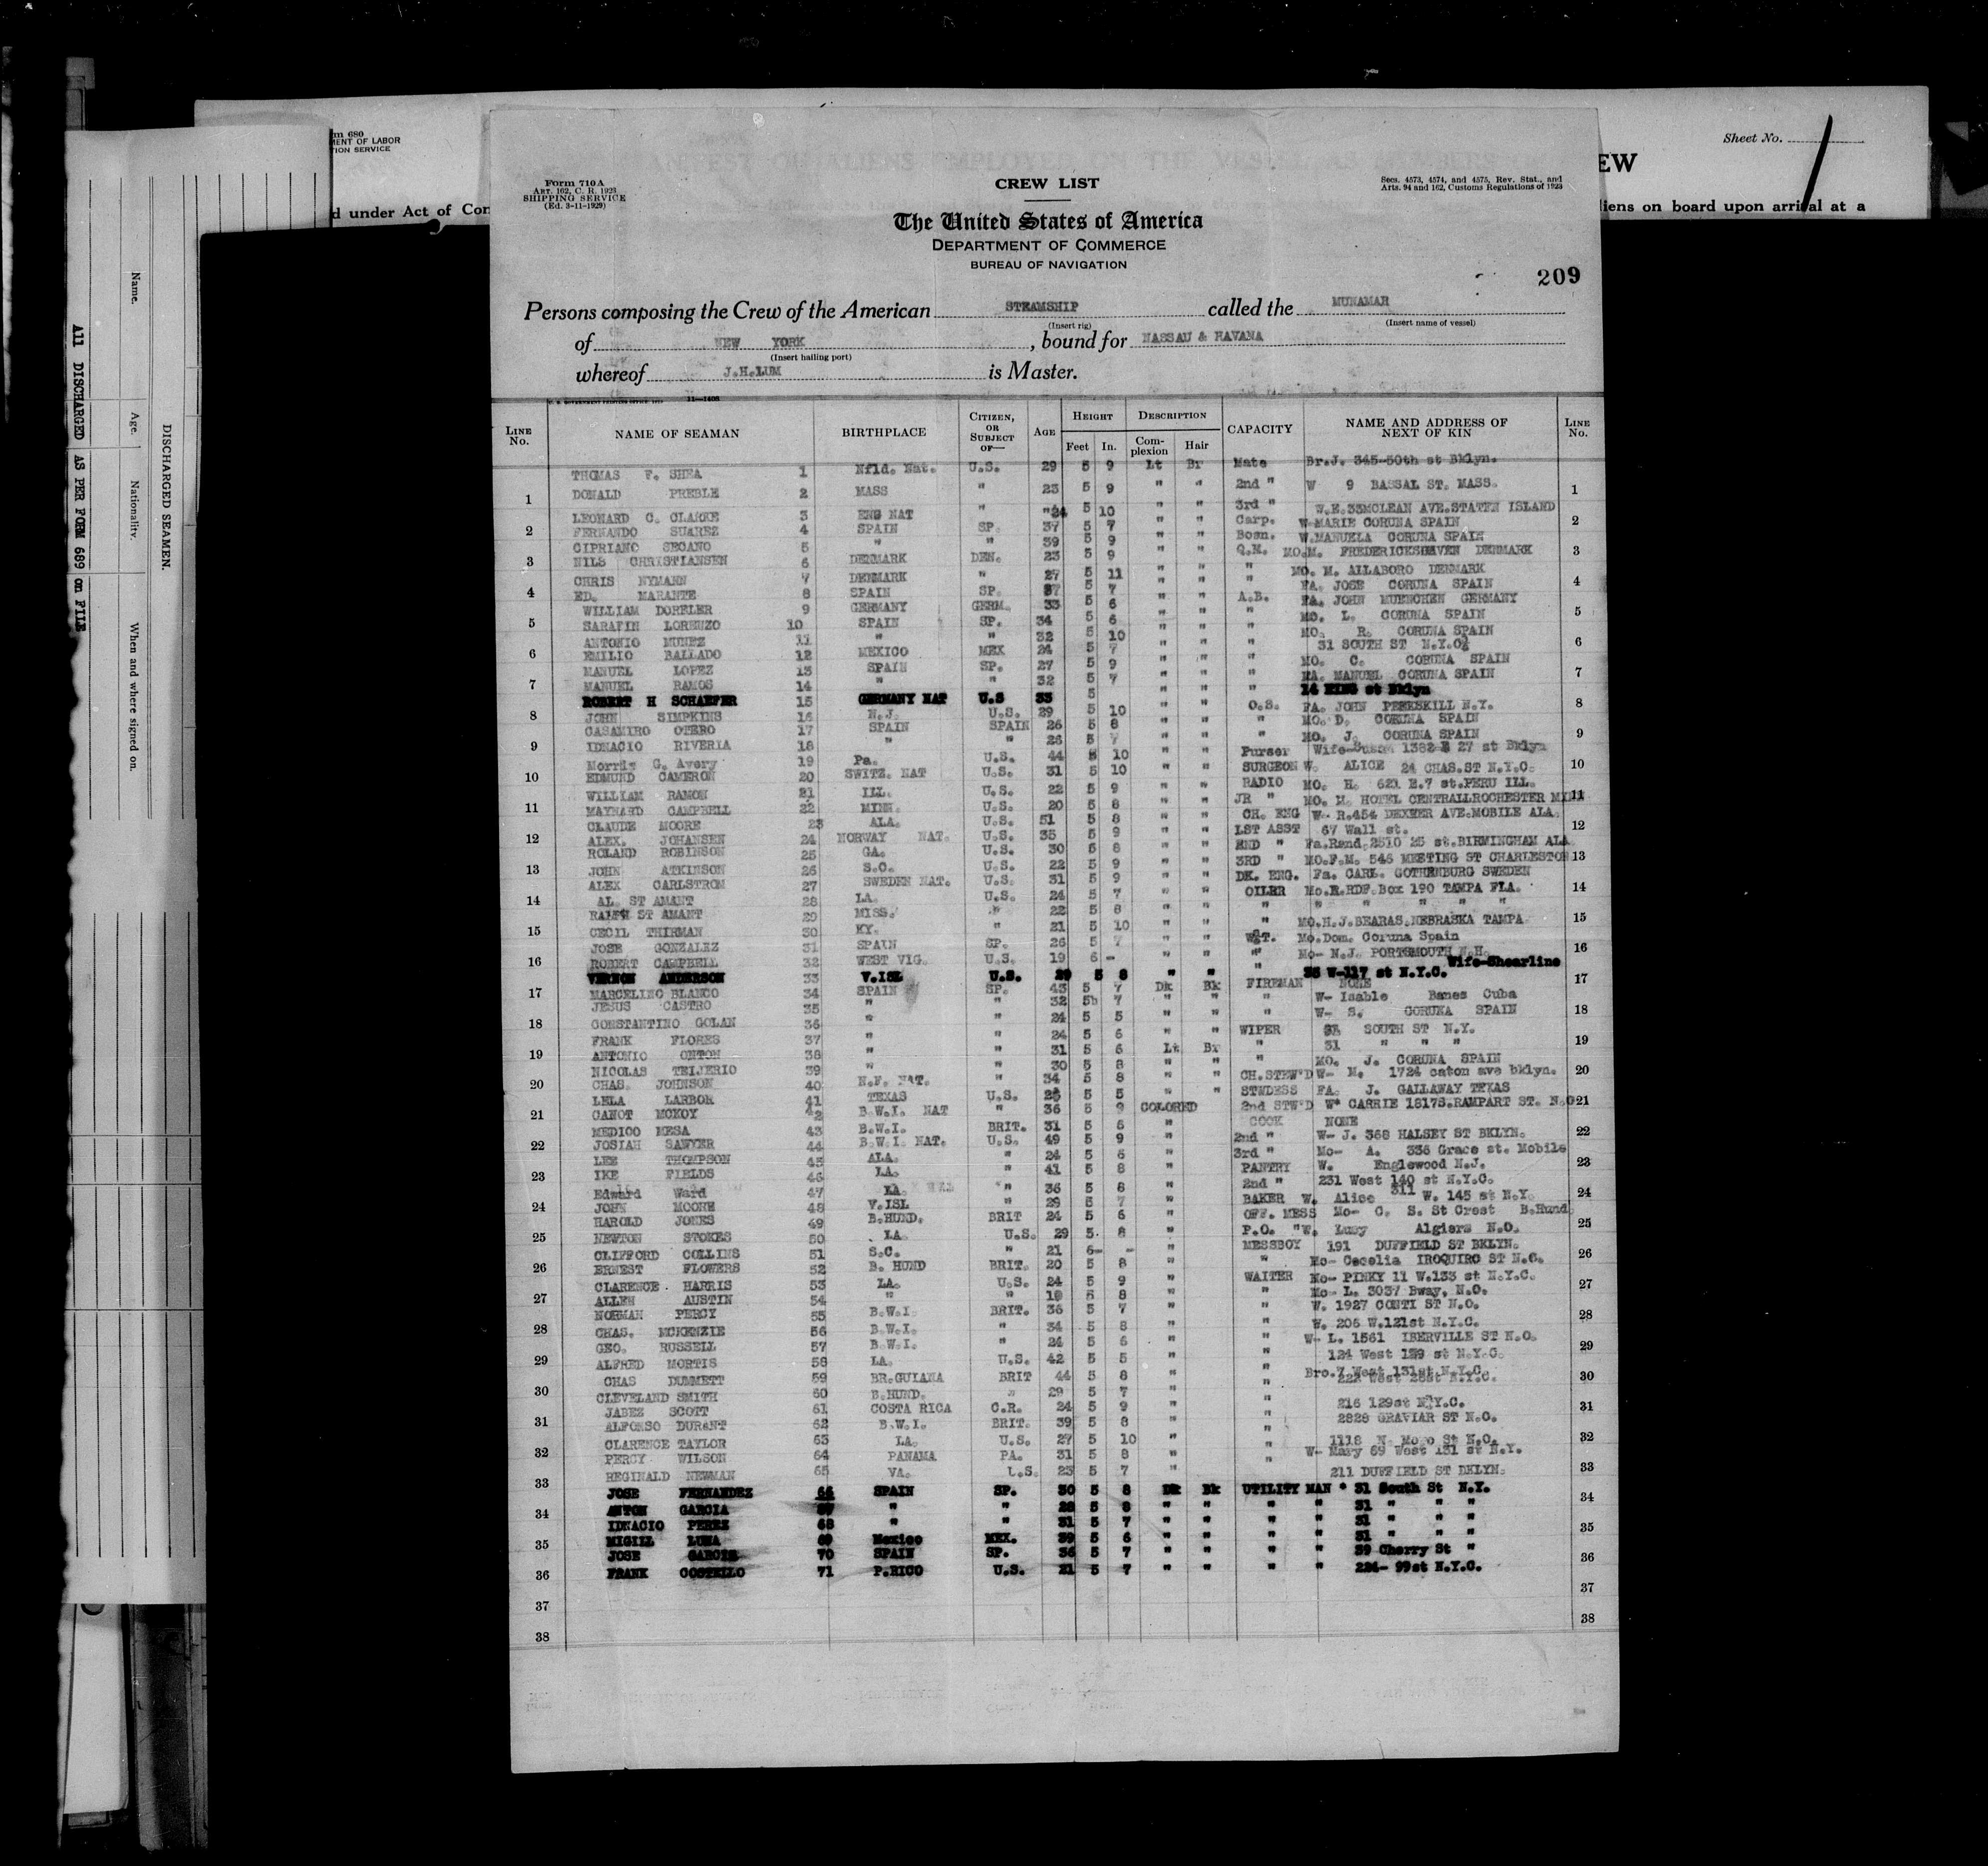 m 680
MENT OF LABOR
TION SERVICE
d under Act of Con
Sheet No. 1
EW
liens on board upon arrival at a
Name.
Age.
Nationality.
When and where signed on.
DISCHARGED SEAMEN.
All DISCHARGED AS PER FORM 689 on FILE
Form 710A
ART. 162, C. R. 1923
SHIPPING SERVICE
(Ed. 3-11-1929)
CREW LIST
Secs. 4573, 4574, and 4575, Rev. Stat., and
Arts. 94 and 162, Customs Regulations of 1923
The United States of America
DEPARTMENT OF COMMERCE
BUREAU OF NAVIGATION
209
Persons composing the Crew of the American STEAMSHIP called the MUNAMAR
(Insert rig) (Insert name of vessel)
of NEW YORK, bound for NASSAU & HAVANA
(Insert hailing port)
whereof J.H.LUM is Master.
LINE No. NAME OF SEAMAN BIRTHPLACE CITIZEN, OR SUBJECT OF— AGE HEIGHT Feet In. DESCRIPTION Complexion Hair CAPACITY NAME AND ADDRESS OF NEXT OF KIN LINE No.
THOMAS F. SHEA 1 Nfld. Nat. U.S. 29 5 9 Lt Br Mate Br.J. 345-50th st Bklyn.
DONALD PREBLE 2 MASS " 23 5 9 " " 2nd " W 9 BASSAL ST. MASS.
LEONARD C. CLARKE 3 ENG NAT " "24 5 10 " " 3rd " W.E.33MCLEAN AVE.STATEN ISLAND
FERNANDO SUAREZ 4 SPAIN SP. 37 5 7 " " Carp. W.MARIE CORUNA SPAIN
CIPRIANO SEOANO 5 " " 39 5 9 " " Bosn. W.MANUELA CORUNA SPAIN
NILS CHRISTIANSEN 6 DENMARK DEN. 23 5 9 " " Q.M. MO.M. FREDERICKSHAVEN DENMARK
CHRIS NYMANN 7 DENMARK " 27 5 11 " " " MO. M. ALLABORO DENMARK
ED. MARANTE 8 SPAIN SP. 37 5 7 " " " FA. JOSE CORUNA SPAIN
WILLIAM DORFLER 9 GERMANY GERM. 33 5 6 " " A.B. FA. JOHN MUENCHEN GERMANY
SARAFIN LORENZO 10 SPAIN SP. 34 5 6 " " " MO. L. CORUNA SPAIN
ANTONIO MUNEZ 11 " " 32 5 10 " " " MO. R. CORUNA SPAIN
EMILIO BALLADO 12 MEXICO MEX 24 5 7 " " " 31 SOUTH ST N.Y.
MANUEL LOPEZ 13 SPAIN SP. 27 5 9 " " " MO. C. CORUNA SPAIN
MANUEL RAMOS 14 " " 32 5 7 " " " FA. MANUEL CORUNA SPAIN
ROBERT H SCHAEFER 15 GERMANY NAT U.S 33 5 " " " 14 KING st Bklyn
JOHN SIMPKINS 16 N.J. U.S. 29 5 10 " " O.S. FA. JOHN PEEKSKILL N.Y.
CASAMIRO OTERO 17 SPAIN SPAIN 26 5 8 " " " MO. D. CORUNA SPAIN
IDNACIO RIVERIA 18 " " 26 5 7 " " " MO. J. CORUNA SPAIN
Morris G. Avery 19 Pa. U.S. 44 5 10 " " Purser Wife-Susan 1382 E 27 st Bklyn
EDMUND CAMERON 20 SWITZ. NAT U.S. 31 5 10 " " SURGEON W. ALICE 24 CHAS.ST N.Y.C.
WILLIAM RAMON 21 ILL. U.S. 22 5 9 " " RADIO MO. H. 621 E.7 st.PERU ILL.
MAYNARD CAMPBELL 22 MINN. U.S. 20 5 8 " " JR " MO. M. HOTEL CENTRALLROCHESTER MINN
CLAUDE MOORE 23 ALA. U.S. 51 5 8 " " CH. ENG W- R.454 DEXTER AVE.MOBILE ALA.
ALEX. JOHANSEN 24 NORWAY NAT. U.S. 35 5 9 " " LST ASST 67 Wall st.
ROLAND ROBINSON 25 GA. U.S. 30 5 8 " " 2ND " Fa.Rand.2510 25 st.BIRMINGHAM ALA
JOHN ATKINSON 26 S.C. U.S. 22 5 9 " " 3RD " MO.F.M. 546 MEETING ST CHARLESTON
ALEX CARLSTROM 27 SWEDEN NAT. U.S. 31 5 9 " " DK. ENG. Fa. CARL. GOTHENBURG SWEDEN
AL. ST AMANT 28 LA. U.S. 24 5 7 " " OILER Mo.E.RDF.Box 190 TAMPA FLA.
RALPH ST AMANT 29 MISS. " 22 5 8 " " " " " " " "
CECIL THIRMAN 30 KY. " 21 5 10 " " " MO.H.J.BEARAS.NEBRASKA TAMPA
JOSE GONZALEZ 31 SPAIN SP. 26 5 7 " " W.T. Mo.Dom. Coruna Spain
ROBERT CAMPBELL 32 WEST VIG. U.S. 19 6 - " " " Mo- N.J. PORTSMOUTH N.H.
VERNON ANDERSON 33 V.ISL U.S. 29 5 8 " " " 36 W-117 st N.Y.C. Wife-Shearline
MARCELINO BLANCO 34 SPAIN SP. 43 5 7 Dk Bk FIREMAN NONE
JESUS CASTRO 35 " " 32 5 7 " " " W- Isable Banes Cuba
CONSTANTINO GOLAN 36 " " 24 5 5 " " " W- S. CORUNA SPAIN
FRANK FLORES 37 " " 24 5 6 " " WIPER 31 SOUTH ST N.Y.
ANTONIO ONTON 38 " " 31 5 6 Lt Br " 31 " " "
NICOLAS TEIJERIO 39 " " 30 5 8 " " " MO. J. CORUNA SPAIN
CHAS. JOHNSON 40 N.F. NAT. " 34 5 8 " " CH.STEW'D W- M. 1724 caton ave bklyn.
LELA LARBOR 41 TEXAS U.S. 5 5 " " STWDESS FA. J. GALLAWAY TEXAS
CANOT MCKOY 42 B.W.I. NAT " 36 5 9 COLORED 2nd STW'D W* CARRIE 1817S.RAMPART ST. N.O
MEDICO MESA 43 B.W.I. BRIT. 31 5 6 " COOK NONE
JOSIAH SAWYER 44 B.W.I. NAT. U.S. 49 5 9 " 2nd " W- J. 368 HALSEY ST BKLYN.
LEE THOMPSON 45 ALA. " 24 5 6 " 3rd " Mo- A. 336 Grace st. Mobile
IKE FIELDS 46 LA. " 41 5 8 " PANTRY W. Englewood N.J.
Edward Ward 47 LA. " 36 5 8 " 2nd " 231 West 140 st N.Y.C.
JOHN MOORE 48 V.ISL " 29 5 7 " BAKER W. Alice 311 W. 145 st N.Y.
HAROLD JONES 49 B.HUND. BRIT 24 5 6 " OFF. MESS Mo- C. S. St Crest B.Hund.
NEWTON STOKES 50 LA. U.S. 29 5 8 " P.O. "W. Lucy Algiers N.O.
CLIFFORD COLLINS 51 S.C. " 21 6- - " MESSBOY 191 DUFFIELD ST BKLYN.
ERNEST FLOWERS 52 B. HUND BRIT. 20 5 8 " " Mo- Cecelia IROQUIRO ST N.O.
CLARENCE HARRIS 53 LA. U.S. 24 5 9 " WAITER Mo- PINKY 11 W.133 st N.Y.C.
ALLEN AUSTIN 54 " " 19 5 8 " " Mo- L. 3037 Bway. N.O.
NORMAN PERCY 55 B.W.I. BRIT. 36 5 7 " " W. 1927 CONTI ST N.O.
CHAS. MCKENZIE 56 B.W.I. " 34 5 8 " " W. 206 W.121st N.Y.C.
GEO. RUSSELL 57 B.W.I. " 24 5 6 " " W- L. 1561 IBERVILLE ST N.O.
ALFRED MORTIS 58 LA. U.S. 42 5 5 " " 124 West 139 st N.Y.C.
CHAS DUMMETT 59 BR.GUIANA BRIT 44 5 8 " " Bro.7 West 131st N.Y.C.
CLEVELAND SMITH 60 B.HUND. " 29 5 7 " " West N.Y.C.
JABEZ SCOTT 61 COSTA RICA C.R. 24 5 9 " " 216 129st N.Y.C.
ALFONSO DURANT 62 B.W.I. BRIT. 39 5 8 " " 2828 GRAVIAR ST N.O.
CLARENCE TAYLOR 63 LA. U.S. 27 5 10 " " 1118 N. St N.O.
PERCY WILSON 64 PANAMA PA. 31 5 8 " " W- Mary 69 West 131 st N.Y.
REGINALD NEWMAN 65 VA. U.S. 23 5 7 " 211 DUFFIELD ST BKLYN.
JOSE FERNANDEZ 66 SPAIN SP. 30 5 8 Dk Bk UTILITY MAN * 31 South St N.Y.
ANTON GARCIA 67 " " 28 5 8 " " " " 31 " " "
IDNACIO PEREZ 68 " " 31 5 7 " " " " 31 " " "
MIGILL LUNA 69 Mexico MEX. 39 5 6 " " " " 31 " " "
JOSE GARCIA 70 SPAIN SP. 36 5 7 " " " " 39 Cherry St "
FRANK COSTELLO 71 P.RICO U.S. 21 5 7 " " " " 224- 99st N.Y.C.